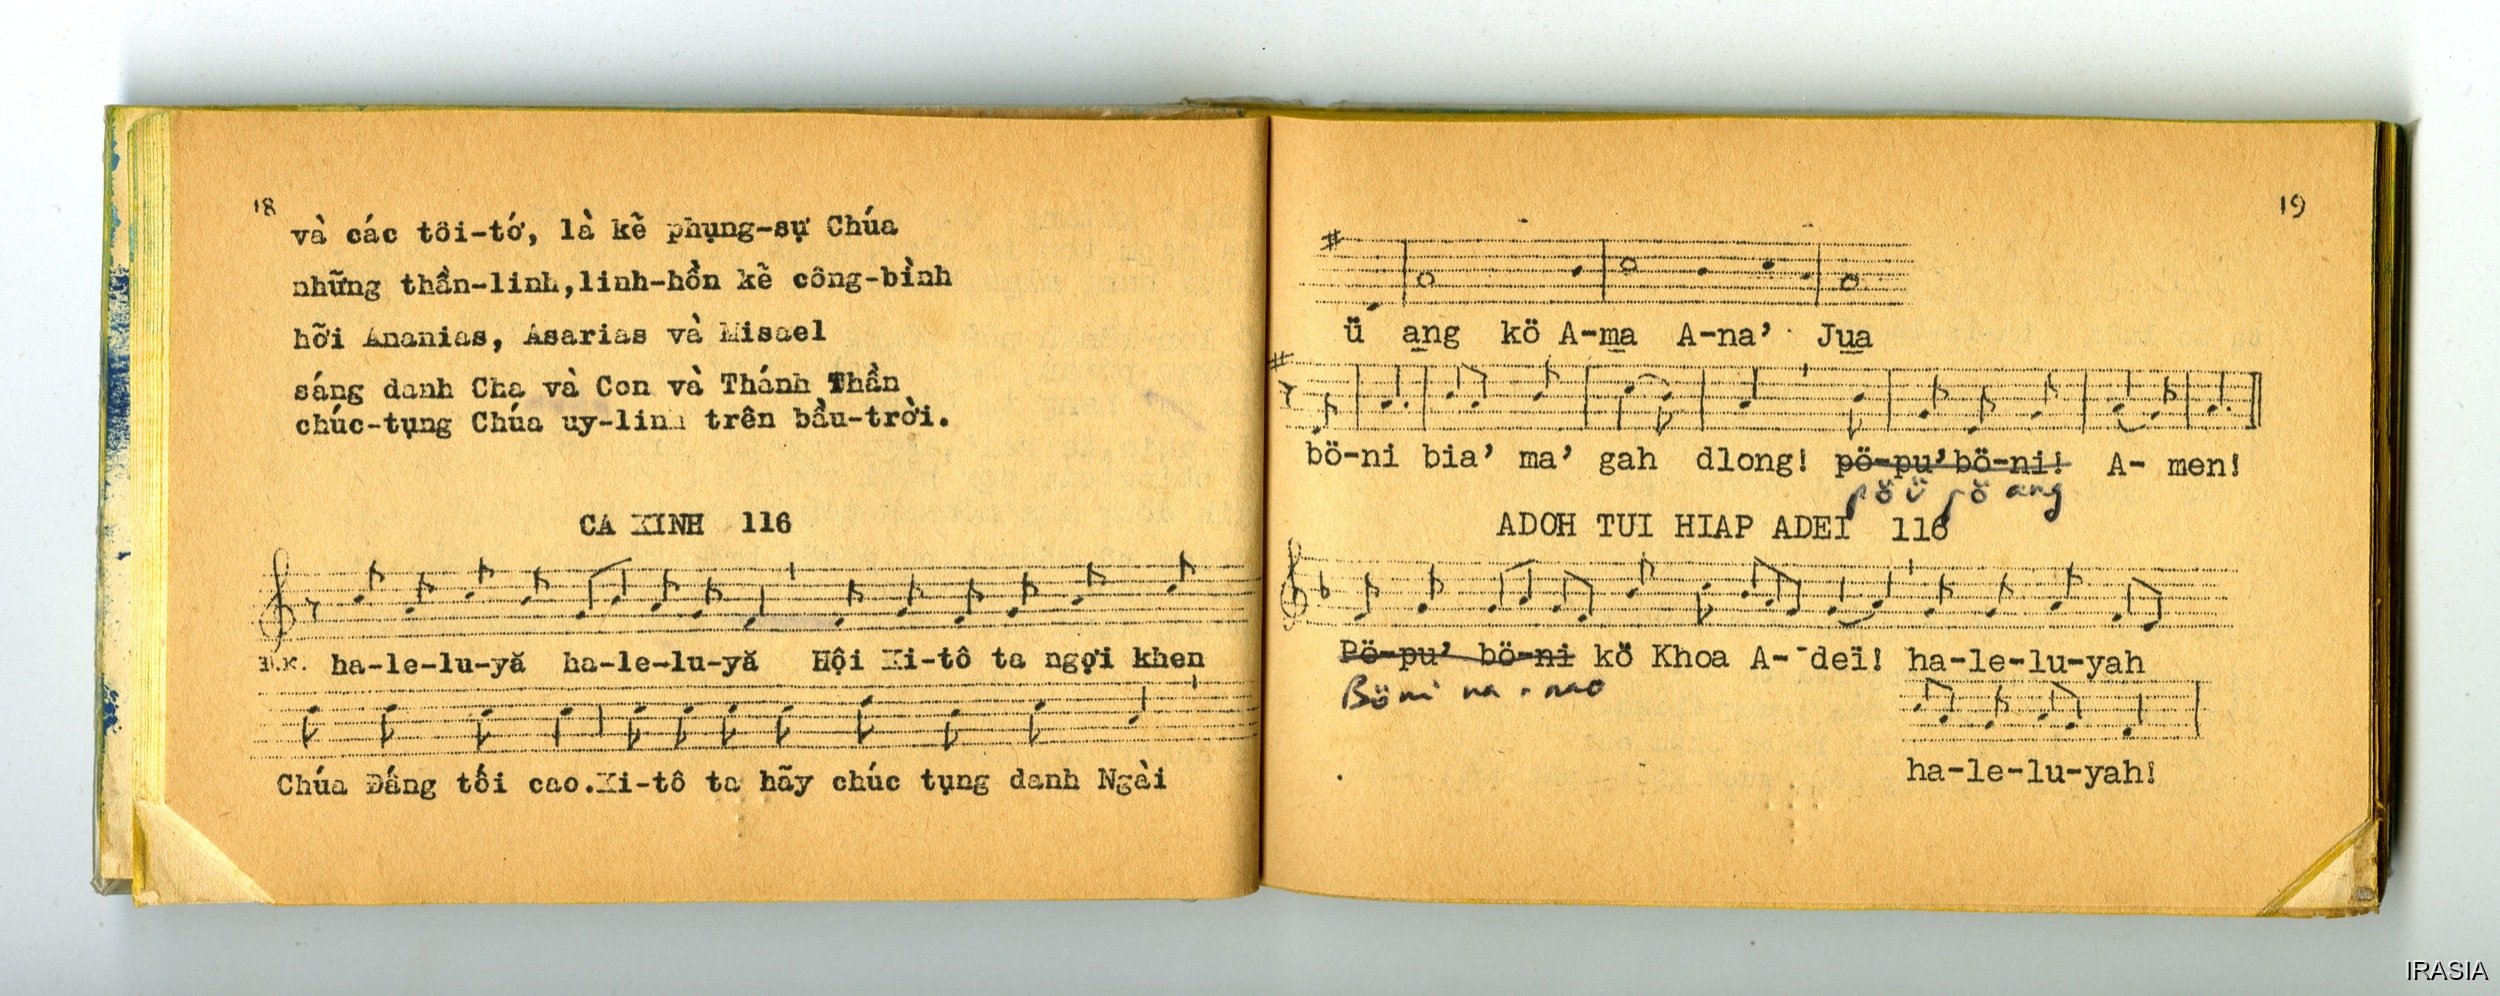 18
và các tôi-tớ, là kẽ phụng-sự Chúa
những thần-linh,linh-hồn kẽ công-bình
hỡi Ananias, Asarias và Misael
sáng danh Cha và Con và Thánh Thần
chúc-tụng Chúa uy-linh trên bầu-trời.
CA XINH 116
ha-le-lu-yă ha-le-lu-yă Hội Xi-tô ta ngợi khen
Chúa Đấng tối cao.Xi-tô ta hãy chúc tụng danh Ngài
19
ü ang kö A-ma A-na' Jua
bö-ni bia' ma' gah dlong! pö-pu'bö-ni! A- men!
pö ü pö ang
ADOH TUI HIAP ADEI 116
Pö-pu' bö-ni kö Khoa A-deï! ha-le-lu-yah
Böni na nao
ha-le-lu-yah!
IRASIA